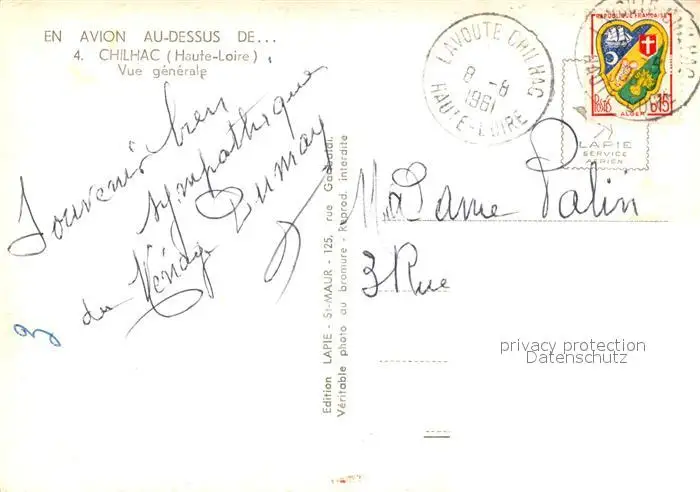 EN AVION AU-DESSUS DE...
4. CHILHAC (Haute-Loire)
Vue générale
Souvenir bien
sympathique
du Ménage Dumay
Edition LAPIE - St-MAUR - 125, rue Garibaldi.
Véritable photo au bromure - Reprod. interdite
LAVOUTE CHILHAC
8 -8
1961
HAUTE-LOIRE
REPUBLIQUE FRANÇAISE
POSTES
0,15
ALGER
LAPIE
SERVICE
AERIEN
Madame Palin
3 Rue
privacy protection
Datenschutz